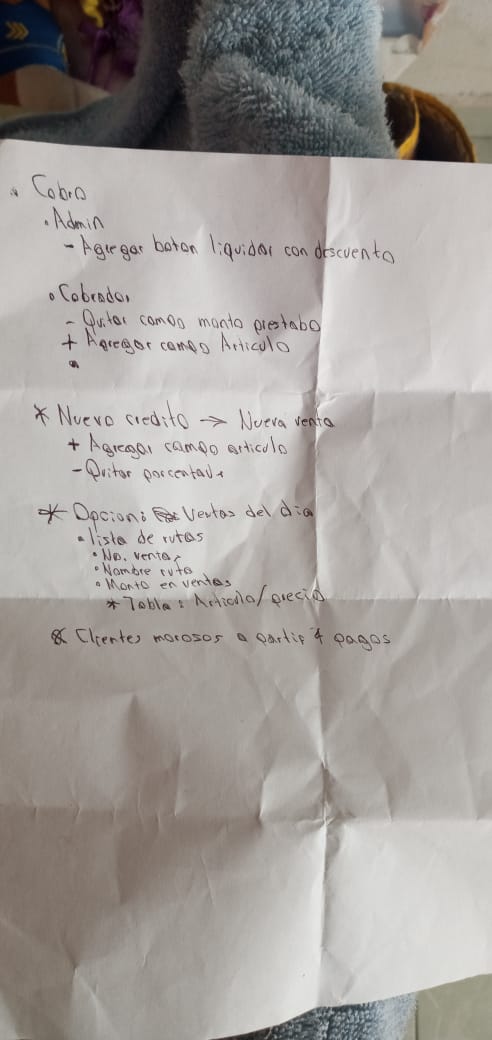 * Cobro
• Admin
- Agregar boton liquidar con descuento
• Cobrador
- Quitar campo monto prestabo
+ Agregar campo Articulo
* Nuevo credito → Nueva venta
+ Agregar campo articulo
- Quitar porcentaje
* Opcion: Ventas del dia
• lista de rutas
• No. ventas
• Nombre ruta
• Monto en ventas
* Tabla: Articulo/precio
* Clientes morosos a partir 4 pagos